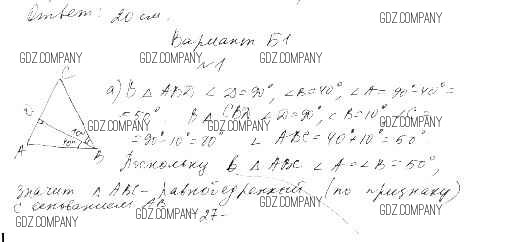 Ответ: 20 см.
GDZ.COMPANY
Вариант Б1
GDZ.COMPANY GDZ.COMPANY GDZ.COMPANY
№1
C
а) В △ ABD ∠D=90°, ∠B=40°, ∠A=90°-40°=
GDZ.COMPANY GDZ.COMPANY GDZ.COMPANY
=50°. В △ CBD ∠D=90°, ∠B=10°
=90°-10°=80° ∠ABC=40°+10°=50°
A B
Поскольку в △ ABC ∠A=∠B=50°,
значит △ ABC - равнобедренный (по признаку)
с основанием AB
GDZ.COMPANY GDZ.COMPANY GDZ.COMPANY GDZ.COMPANY
27-